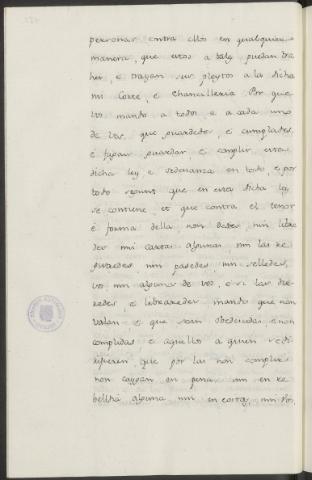 personas contra ellos en qualquiera
manera, que estos a tales puedan tra
her, e trayan sus pleytos a la dicha
mi Corte, e Chancilleria. Por que
vos mando a todos e a cada uno
de vos, que guardedes, e cumplades,
e fagais guardar e complir esta
dicha ley, e ordenanza en todo, e por
todo segunt que en esta dicha ley
se contiene, et que contra el tenor
e forma della non dedes, nin libre
des mi cartas algunas, nin las re
gistredes nin pasedes, nin selledes,
vos nin algunos de vos, e si las die
redes, e libraredes mando que non
valan, e que sean obedecidas e non
complidas e aquellos a quien se di
rigieren, que por las non complir
non cayan en pena nin en re
beldia alguna nin en cortes, nin Por